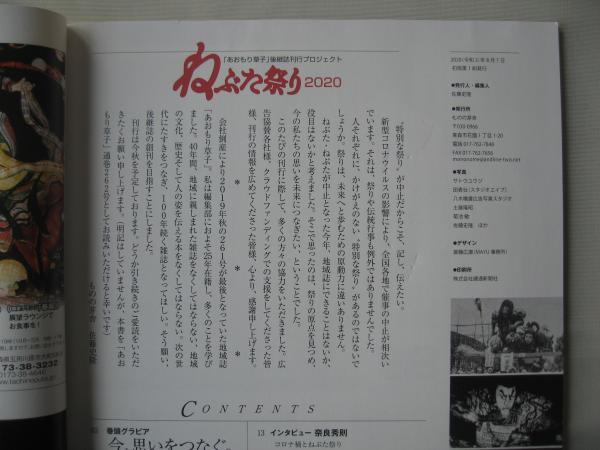 「あおもり草子」後継誌刊行プロジェクト
ねぶた祭り2020
“特別な祭り”が中止だからこそ、記し、伝えたい。
新型コロナウイルスの影響により、全国各地で催事の中止が相次い
でいます。それは、祭りや伝統行事も例外ではありませんでした。
人それぞれに、かけがえのない“特別な祭り”があるのではないで
しょうか。祭りは、未来へと歩むための原動力に違いありません。
ねぶた・ねぷたが中止となった今年、地域誌にできることはないか、
役目はないかと考えました。そこで思ったのは、祭りの原点を見つめ、
今の私たちの思いを未来につなぎたい、ということでした。
このたびの刊行に際して、多くの方々の協力をいただきました。広
告協賛各社様、クラウドファンディングでの支援をしてくださった皆
様、刊行の情報を広めてくださった皆様、心より、感謝申し上げます。
* * *
会社倒産により2019年秋の261号が最後となっていた地域誌
「あおもり草子」。私は編集部におよそ25年在籍し、多くのことを学び
ました。40年間、地域に親しまれた雑誌をなくしてはならない、地域
の文化、歴史そして人の姿を伝える本をなくしてはならない、次の世
代にたすきをつなぎ、100年続く雑誌となってほしい。そう願い、
後継誌の創刊を目指すことにしました。
刊行は今秋を予定しております。どうか引き続きのご愛読をいただ
きたくお願い申し上げます。（明記はしていませんが、本書を「あお
もり草子」通巻262号としてお読みいただけると幸いです）
ものの芽舎 佐藤史隆
2020(令和2)年8月7日
初版第1刷発行
●発行人・編集人
佐藤史隆
●発行所
ものの芽舎
〒030-0966
青森市花園1丁目1-20
電話 017-762-7848
FAX 017-762-7850
mononome@andline-two.net
●写真
サトウユウジ
田香谷(スタジオエイプ)
八木橋廣出張写真スタジオ
土屋隆昭
菊池敏
佐藤史隆 ほか
●デザイン
●印刷所
株式会社繊通新聞社
CONTENTS
巻頭グラビア
今、思いをつなぐ。
13 インタビュー 奈良秀則
コロナ禍とねぶた祭り
展望ラウンジで
お食事を!
173-38-3232
0173-38-4640
www.tachineputa.jp